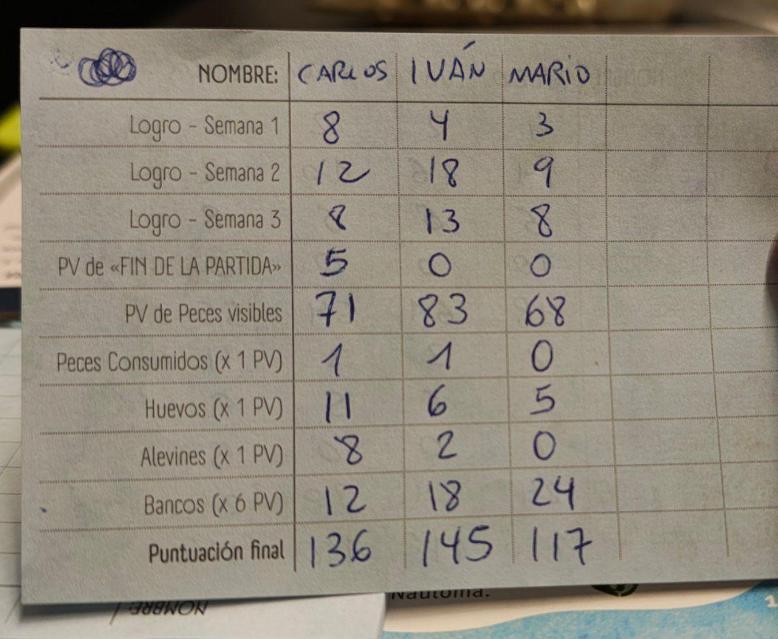 NOMBRE: CARLOS IVÁN MARIO
Logro - Semana 1 8 4 3
Logro - Semana 2 12 18 9
Logro - Semana 3 8 13 8
PV de «FIN DE LA PARTIDA» 5 0 0
PV de Peces visibles 71 83 68
Peces Consumidos (x 1 PV) 1 1 0
Huevos (x 1 PV) 11 6 5
Alevines (x 1 PV) 8 2 0
Bancos (x 6 PV) 12 18 24
Puntuación final 136 145 117
NOMBRE:
Nautoma.